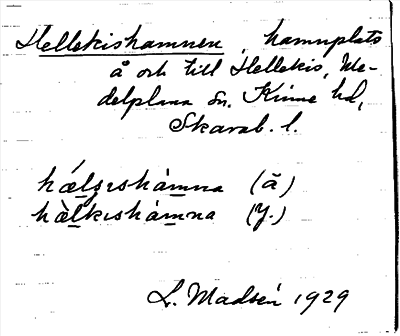 Hellekishamnen, hamnplats
å och till Hellekis, Me-
delplana sn. Kinne hd,
Skarab. l.
hǽlsıshàmna (ä)
hàlkıshámna (y.)
L. Madsén 1929